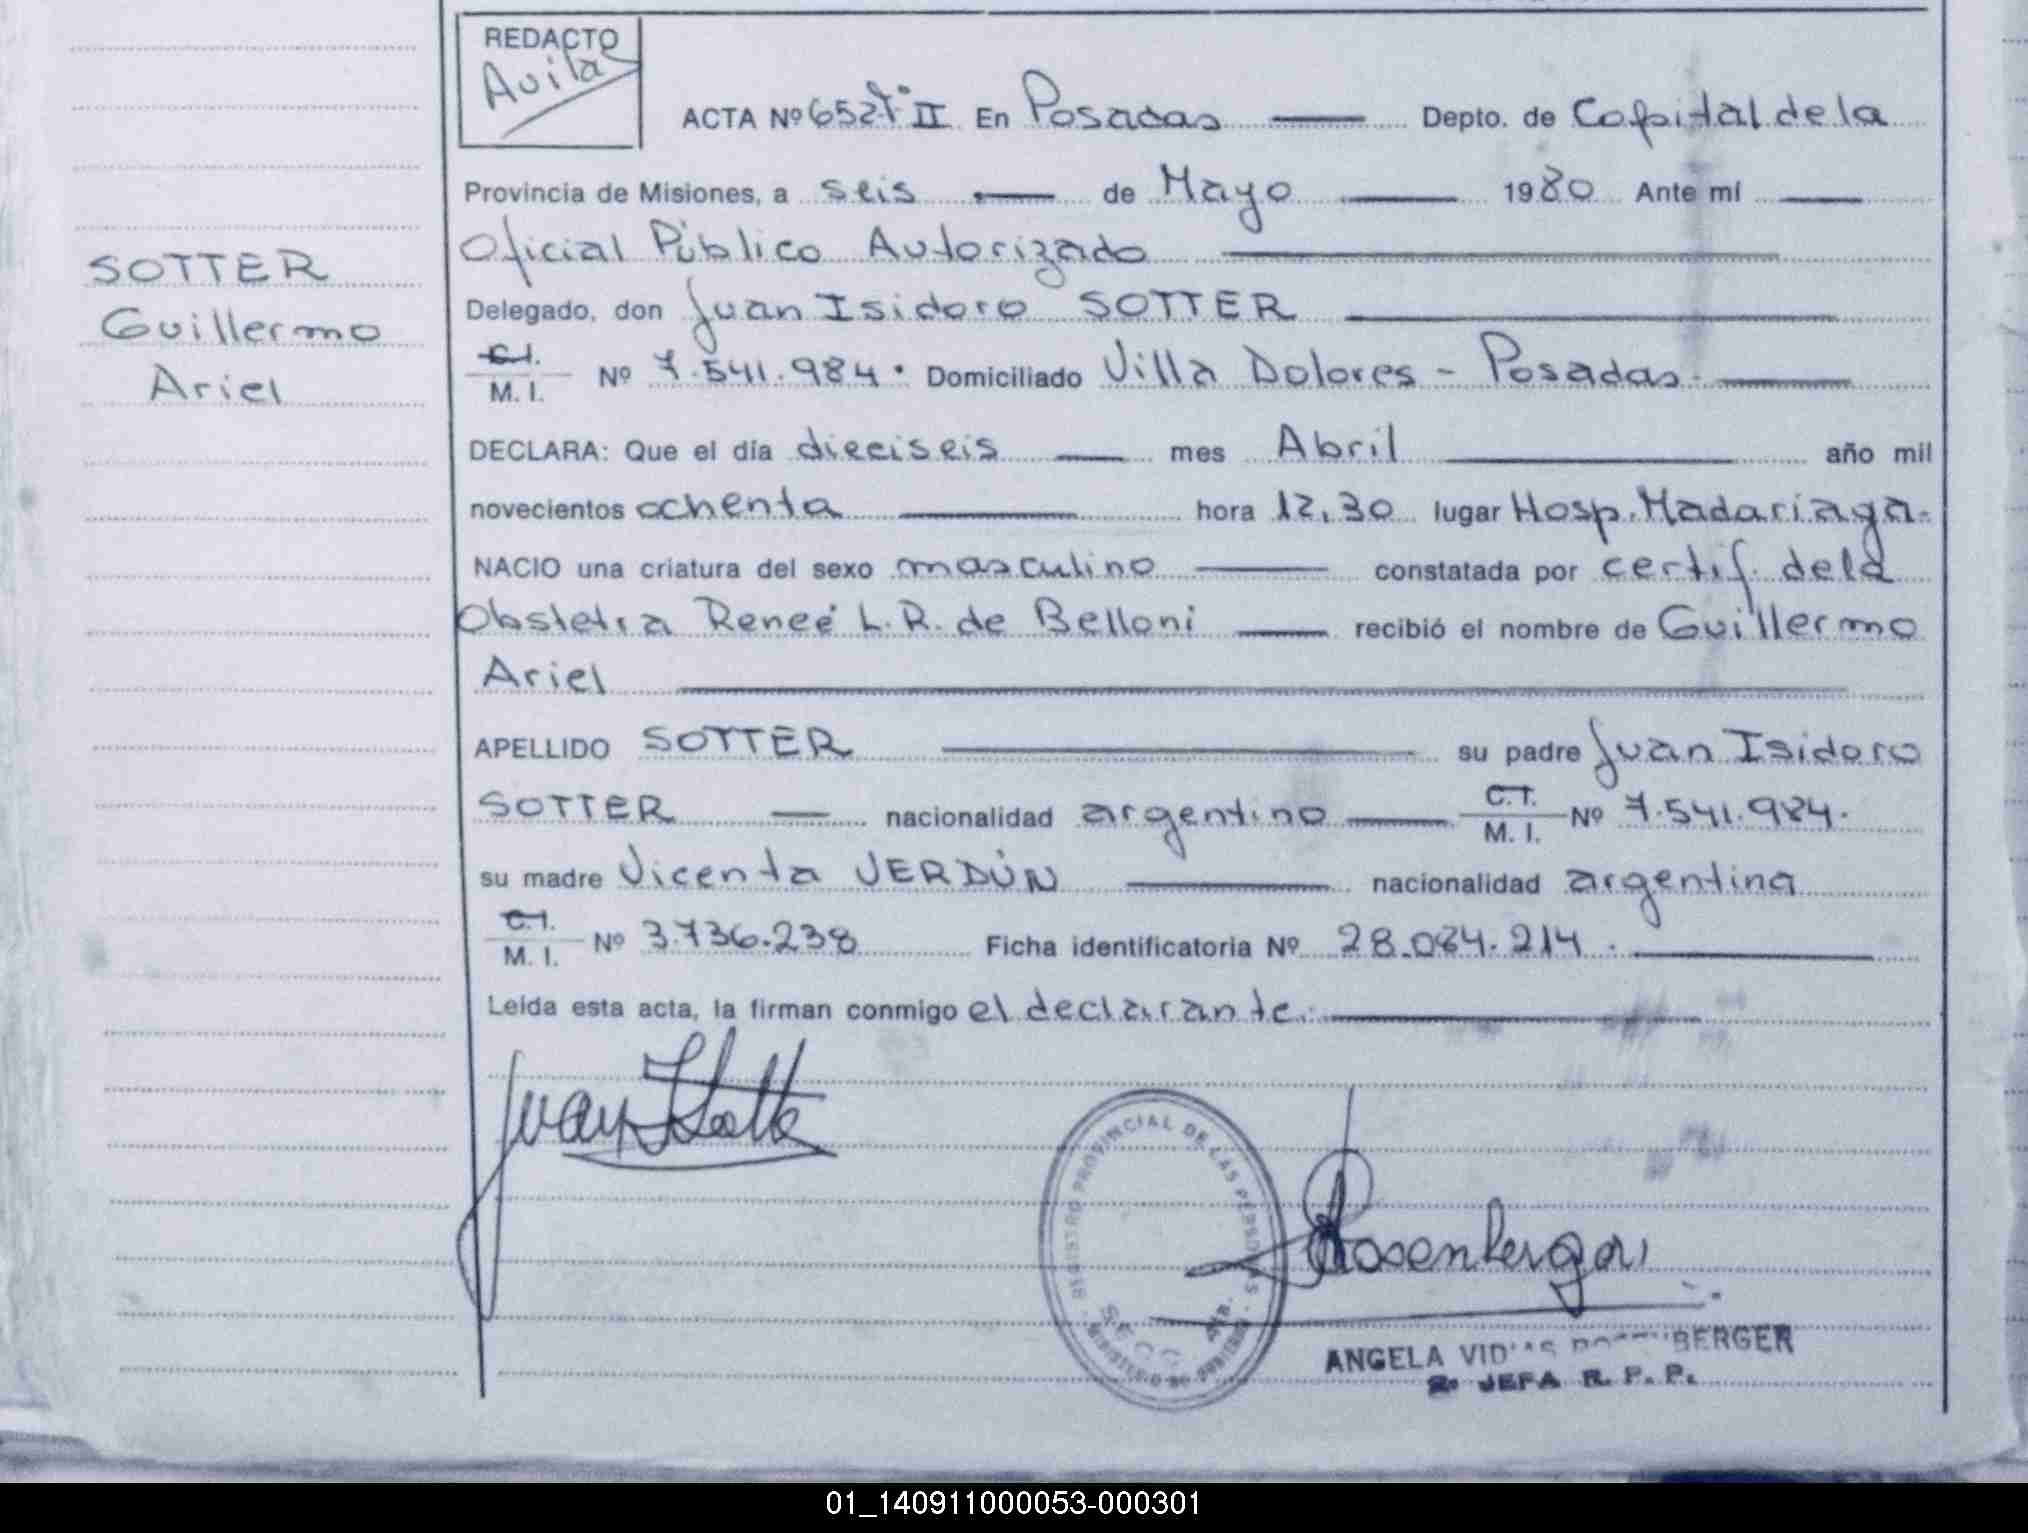 REDACTO
Avila
ACTA Nº 6527º II En Posadas Depto. de Capital de la
Provincia de Misiones, a seis de Mayo 1980 Ante mí
Oficial Público Autorizado
SOTTER
Guillermo
Ariel
Delegado, don Juan Isidoro SOTTER
C.I.
M. I. Nº 7.541.984. Domiciliado Villa Dolores - Posadas.
DECLARA: Que el día dieciseis mes Abril año mil
novecientos ochenta hora 12,30 lugar Hosp. Madariaga.
NACIO una criatura del sexo masculino constatada por certif. de la
Obstetra Reneé L.R. de Belloni recibió el nombre de Guillermo
Ariel
APELLIDO SOTTER su padre Juan Isidoro
SOTTER nacionalidad argentino C.I.
M. I. Nº 7.541.984.
su madre Vicenta VERDÚN nacionalidad argentina
C.I.
M. I. Nº 3.736.238 Ficha identificatoria Nº 28.084.214.
Leída esta acta, la firman conmigo el declarante.
REGISTRO PROVINCIAL DE LAS PERSONAS
ANGELA BERGER
2º JEFA R. P. P.
01_140911000053-000301